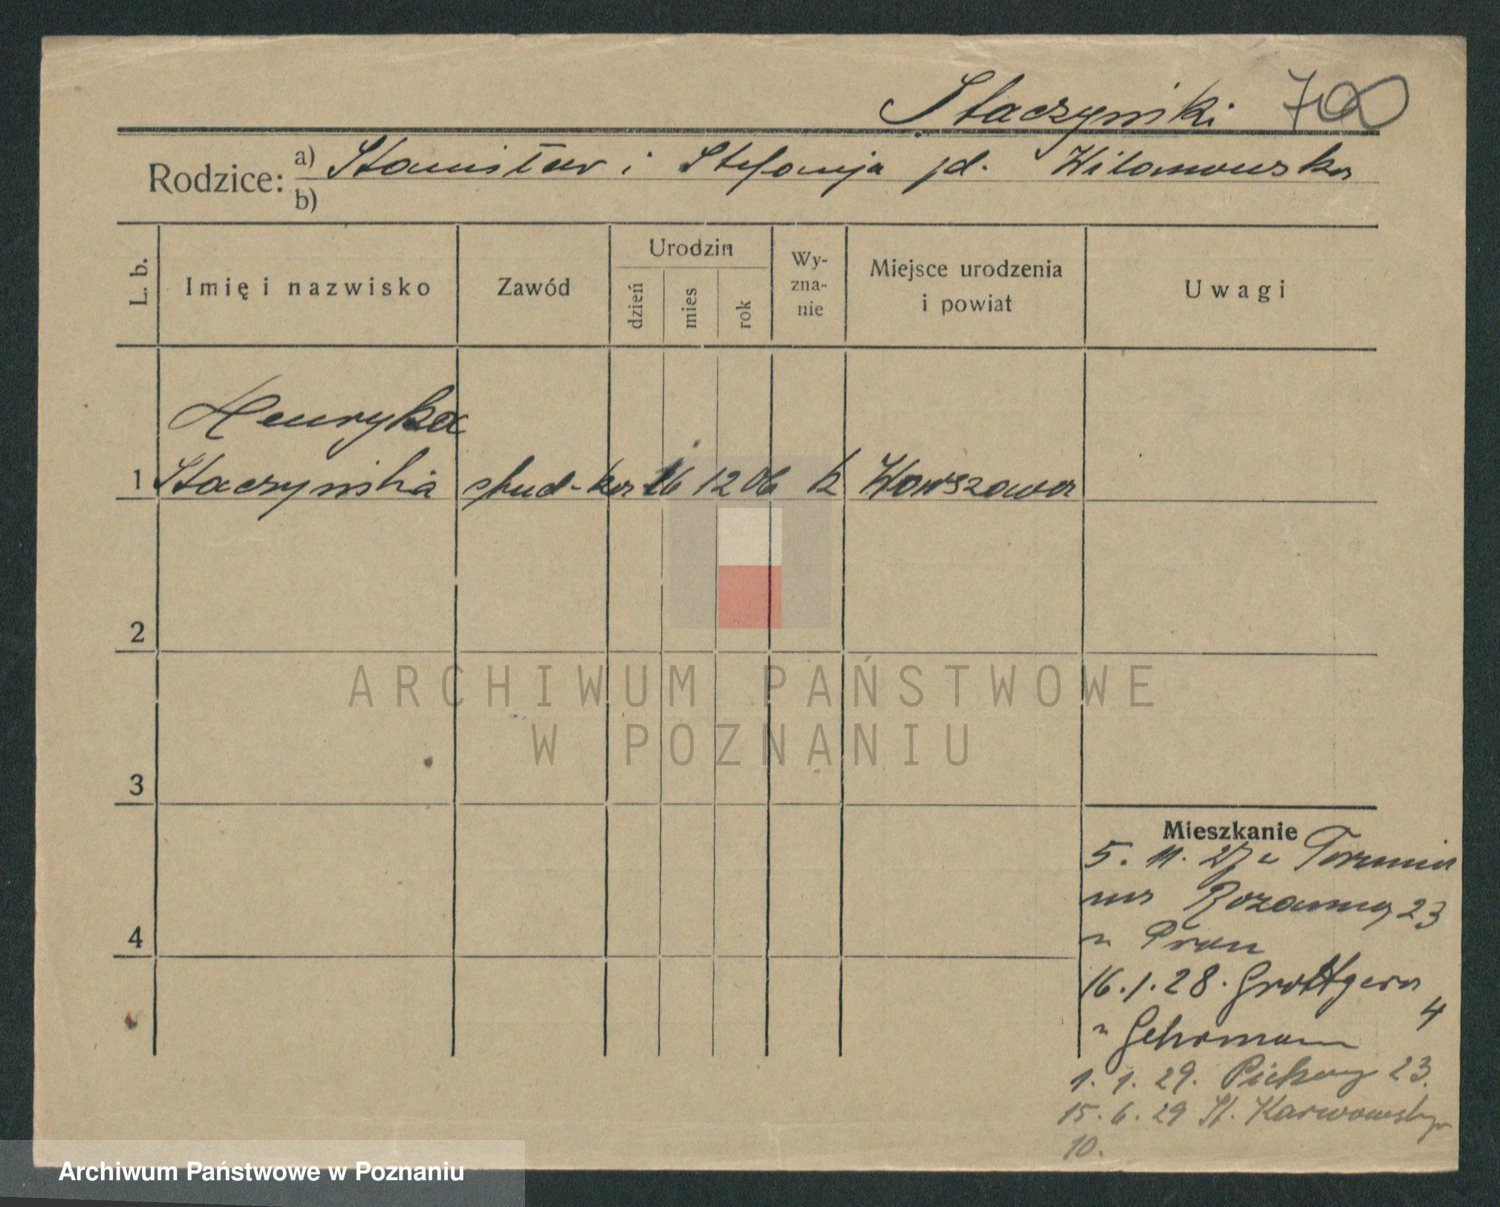 Staczyński 70
Rodzice: a) Stanisław i Stefanja jd. Wilanowska
b)
L. b. Imię i nazwisko Zawód Urodzin dzień mies rok Wy-zna-nie Miejsce urodzenia i powiat Uwagi
Henryka
1 Staczyńska stud-ka 26 12 06 k Warszawa
2
ARCHIWUM PAŃSTWOWE
W POZNANIU
3
Mieszkanie
5. 11. 27 z Torunia
na Różanną 23
u Prau
4
16.1.28. Grottgera 4
u Gehrmann
1. 1. 29. Piekary 23.
15. 6. 29 St. Karwowskiego
10.
Archiwum Państwowe w Poznaniu